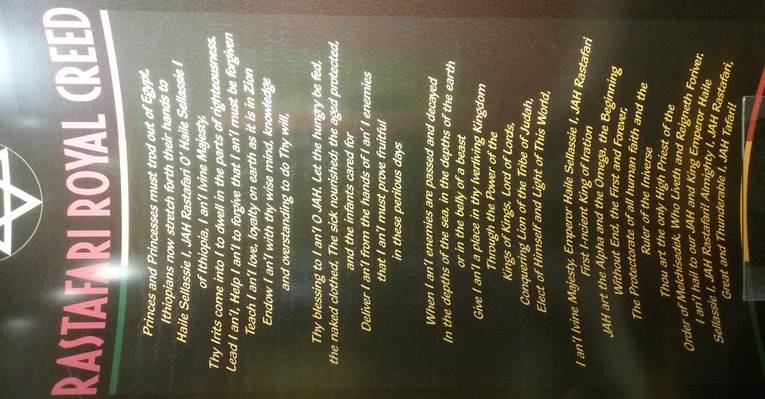 RASTAFARI ROYAL CREED
Princes and Princesses must trod out of Egypt.
Ithiopians now stretch forth their hands to
Haile Sellassie I, JAH Rastafari O' Haile Sellassie I
of Ithiopia, I an'I Ivine Majesty,
Thy Irits come into I to dwell in the parts of righteousness.
Lead I an'I, Help I an'I to forgive that I an'I must be forgiven
Teach I an'I love, loyalty on earth as it is in Zion
Endow I an'I with thy wise mind, knowledge
and overstanding to do Thy will,
Thy blessing to I an'I O JAH. Let the hungry be fed,
the naked clothed, The sick nourished; the aged protected,
and the infants cared for
Deliver I an'I from the hands of I an' I enemies
that I an'I must prove fruitful
in these perilous days
When I an'I enemies are passed and decayed
In the depths of the sea, in the depths of the earth
or in the belly of a beast
Give I an'I a place in thy Iverliving Kingdom
Through the Power of the
Kings of Kings, Lord of Lords,
Conquering Lion of the Tribe of Judah,
Elect of Himself and Light of This World,
I an'I Ivine Majesty, Emperor Haile Sellassie I, JAH Rastafari
First I-ncient King of Iration
JAH art the Alpha and the Omega, the Beginning
Without End, the First and Forever,
The Protectorate of all human faith and the
Ruler of the Iniverse
Thou art the only High Priest of the
Order of Melchisedek, Who Liveth and Reigneth Foriver.
I an'I hail to our JAH and King Emperor Haile
Sellassie I, JAH Rastafari Almighty I, JAH Rastafari,
Great and Thunderable I, JAH Tafari!